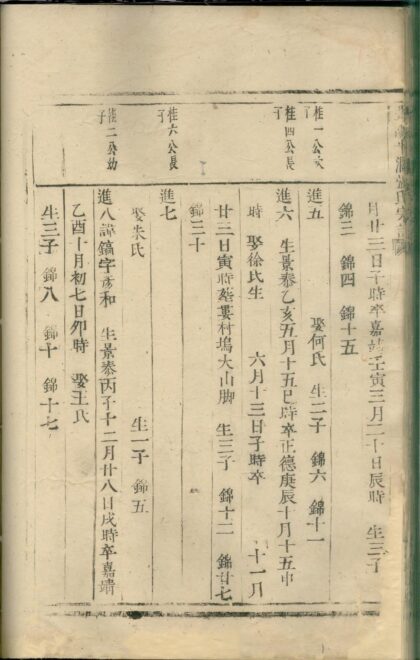 月廿三日子時卒嘉靖壬寅三月二十日辰時 生三子
錦三 錦四 錦十五
桂一公次子
進五 娶何氏 生二子 錦六 錦十一
桂四公長子
進六 生景泰乙亥五月十五巳時卒正德庚辰十月十五申
時 娶徐氏生 六月十三日子時卒 十一月
廿三日寅時葬婁村塢大山脚 生三子 錦十二 錦廿七
錦三十
桂六公長子
進七
娶朱氏 生一子 錦五
桂二公幼子
進八諱鎬字彥和 生景泰丙子十二月廿八日戌時卒嘉靖
乙酉十月初七日卯時 娶王氏
生三子 錦八 錦十 錦十七